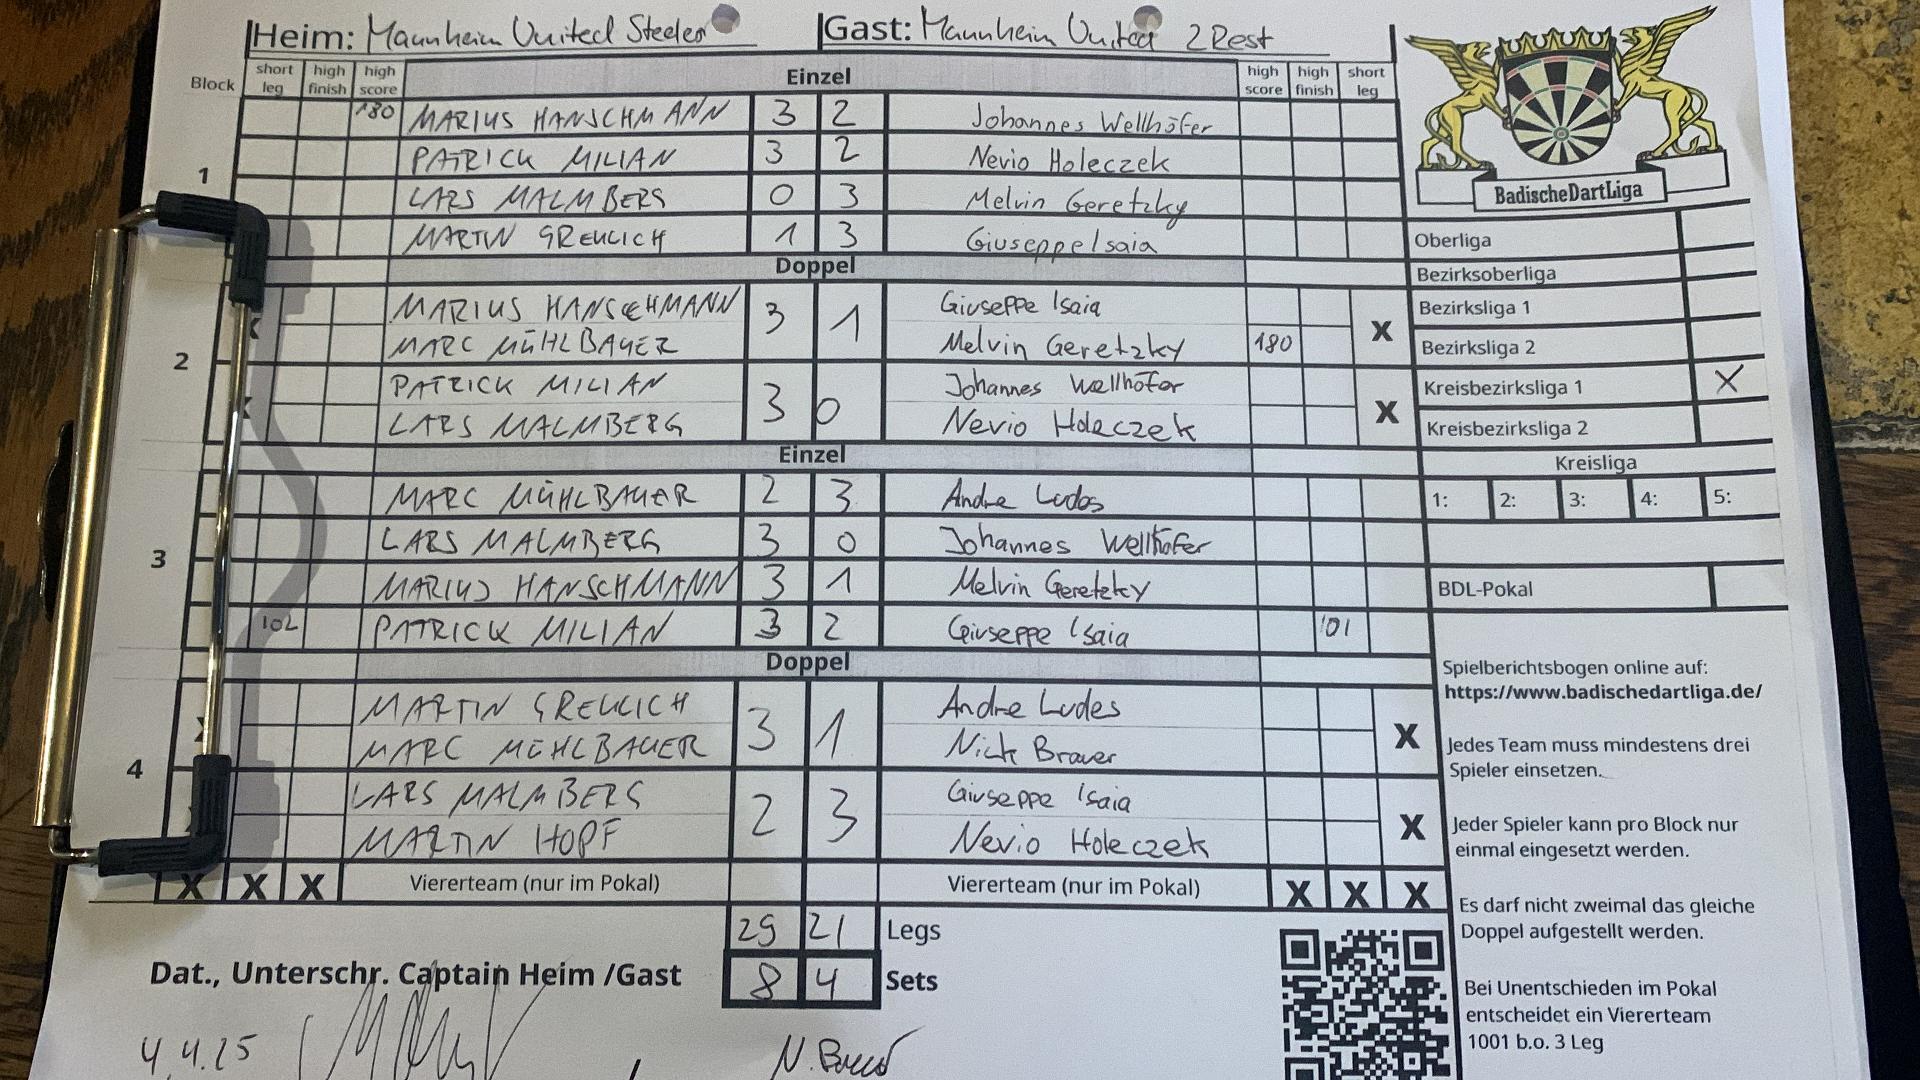 Heim: Mannheim United Steeler Gast: Mannheim United 2Rest
Block short leg high finish high score Einzel high score high finish short leg
1
180 MARIUS HANSCHMANN 3 2 Johannes Wellhöfer
PATRICK MILIAN 3 2 Nevio Holeczek
LARS MALMBERG 0 3 Melvin Geretzky
MARTIN GREULICH 1 3 Giuseppe Isaia
Doppel
2
MARIUS HANSCHMANN 3 1 Giuseppe Isaia
MARC MÜHLBAUER Melvin Geretzky 180 X
PATRICK MILIAN 3 0 Johannes Wellhöfer
LARS MALMBERG Nevio Holeczek X
Einzel
3
MARC MÜHLBAUER 2 3 Andre Ludes
LARS MALMBERG 3 0 Johannes Wellhöfer
MARIUS HANSCHMANN 3 1 Melvin Geretzky
102 PATRICK MILIAN 3 2 Giuseppe Isaia 101
Doppel
4
MARTIN GREULICH 3 1 Andre Ludes
MARC MÜHLBAUER Nick Brauer X
LARS MALMBERG 2 3 Giuseppe Isaia
MARTIN HOPF Nevio Holeczek X
X X X Viererteam (nur im Pokal) Viererteam (nur im Pokal) X X X
29 21 Legs
8 4 Sets
Dat., Unterschr. Captain Heim /Gast
4.4.25
BadischeDartLiga
Oberliga
Bezirksoberliga
Bezirksliga 1
Bezirksliga 2
Kreisbezirksliga 1 X
Kreisbezirksliga 2
Kreisliga
1: 2: 3: 4: 5:
BDL-Pokal
Spielberichtsbogen online auf:
https://www.badischedartliga.de/
Jedes Team muss mindestens drei
Spieler einsetzen.
Jeder Spieler kann pro Block nur
einmal eingesetzt werden.
Es darf nicht zweimal das gleiche
Doppel aufgestellt werden.
Bei Unentschieden im Pokal
entscheidet ein Viererteam
1001 b.o. 3 Leg